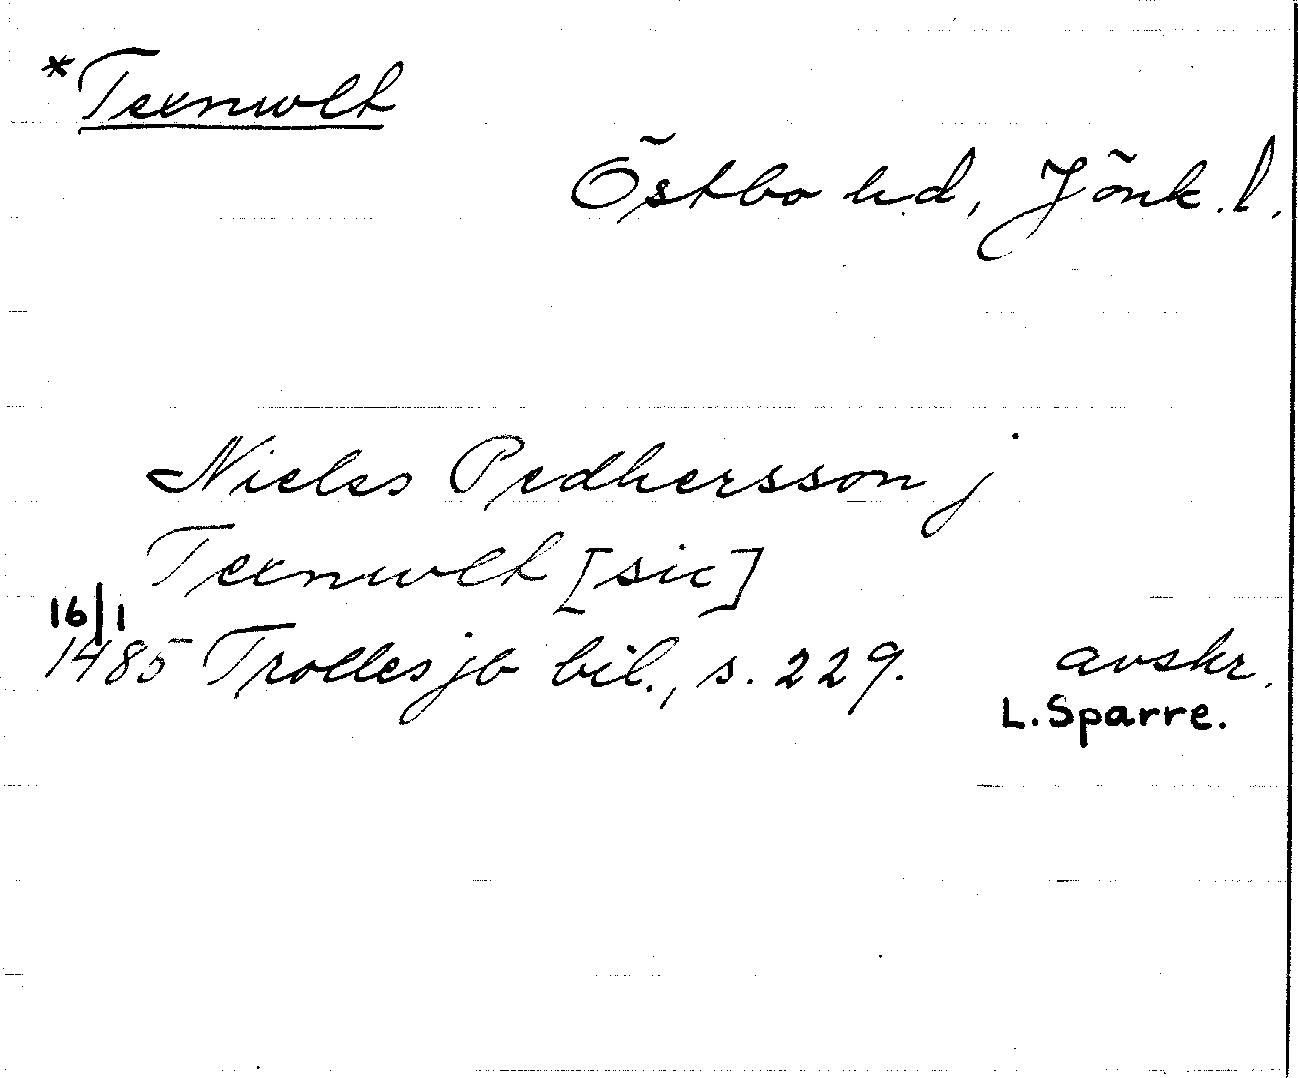 *Texnwlt
Östbo hd, Jönk. l.
Niels Pedhersson j
Texnwlt [sic]
16/1
1485 Trolles jb bil., s. 229. avskr.
L. Sparre.